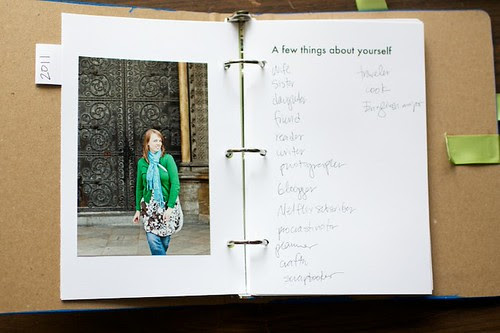 2011
A few things about yourself
wife
sister
daughter
friend
reader
writer
photographer
blogger
Netflix subscriber
procrastinator
planner
crafter
scrapbooker
traveler
cook